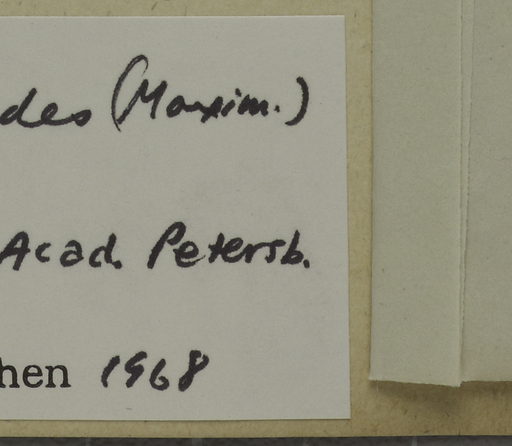 des (Maxim.)
Acad. Petersb.
hen 1968